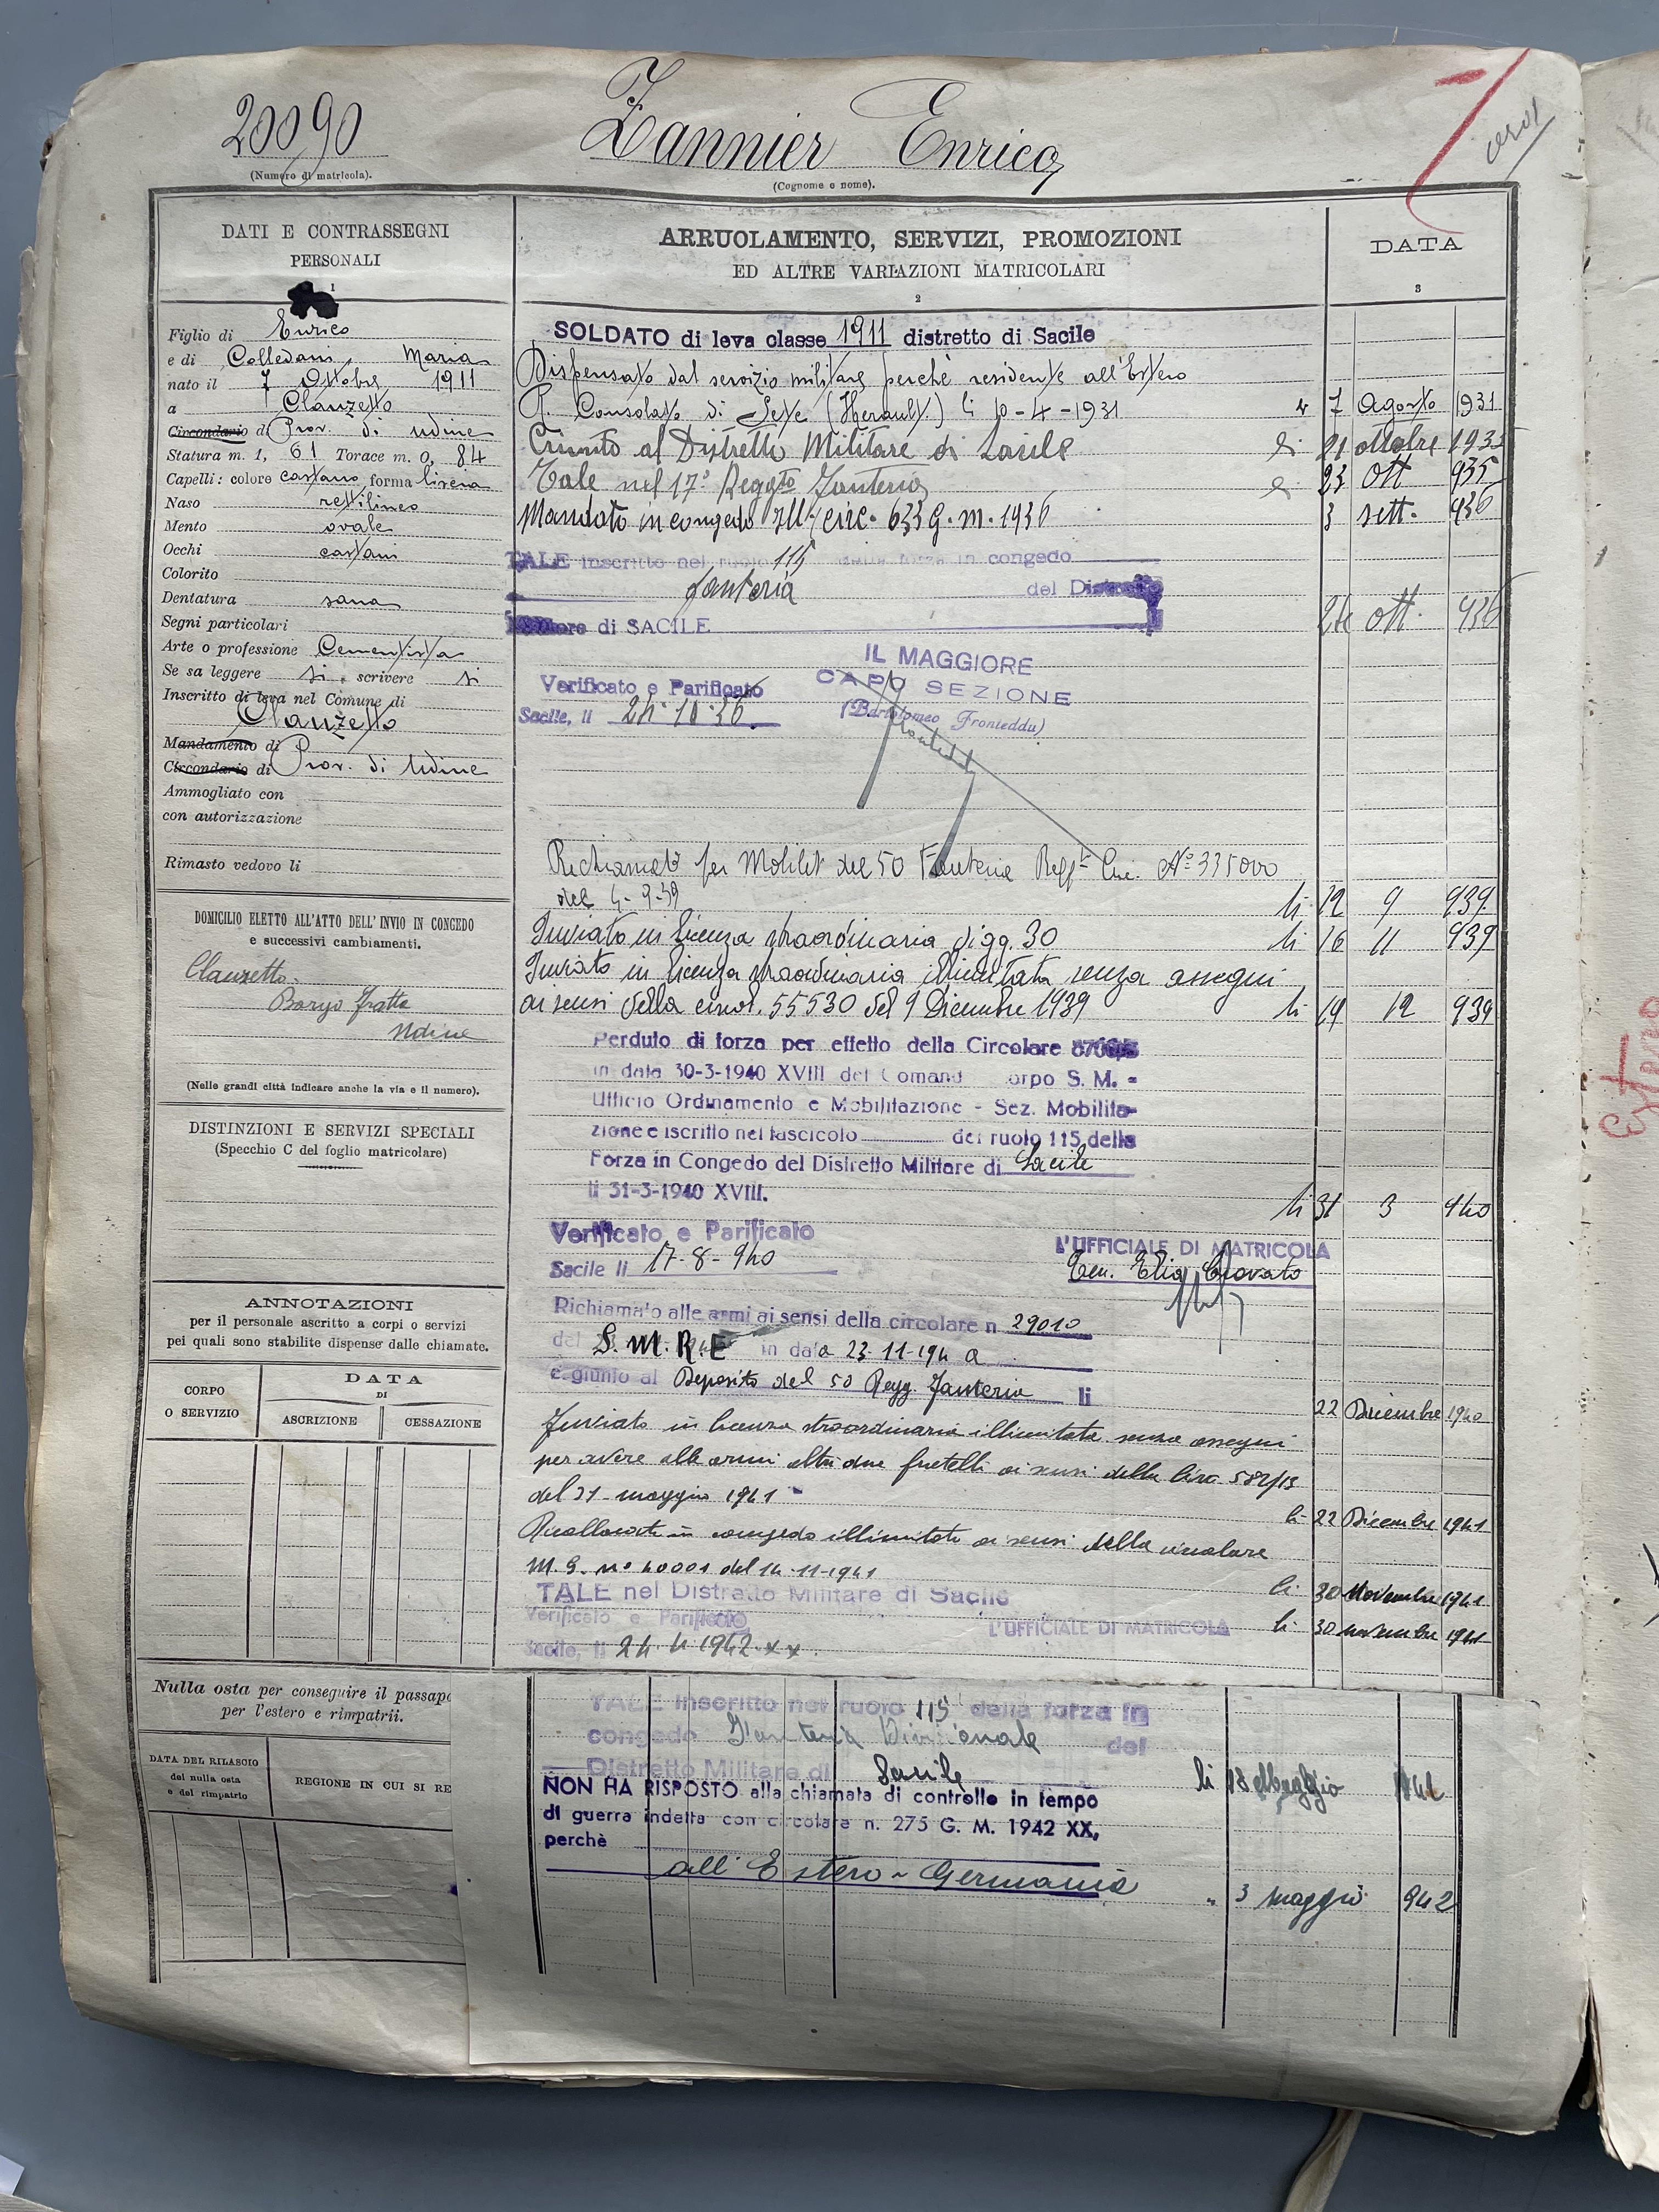 20090
Zannier Enrico
(Numero di matricola).
(Cognome e nome).
DATI E CONTRASSEGNI
PERSONALI
1
Figlio di Enrico
e di Colledani Maria
nato il 7 Ottobre 1911
a Clauzetto
Circondario di Prov. di Udine
Statura m. 1, 61 Torace m. 0, 84
Capelli: colore castano, forma liscia
Naso rettilineo
Mento ovale
Occhi castani
Colorito
Dentatura sana
Segni particolari
Arte o professione Cementista
Se sa leggere si, scrivere si
Inscritto di leva nel Comune di
Clauzetto
Mandamento di
Circondario di Prov. di Udine
Ammogliato con
con autorizzazione
Rimasto vedovo li
DOMICILIO ELETTO ALL'ATTO DELL'INVIO IN CONGEDO
e successivi cambiamenti.
Clauzetto
Borgo Fratta
Udine
(Nelle grandi città indicare anche la via e il numero).
DISTINZIONI E SERVIZI SPECIALI
(Specchio C del foglio matricolare)
ANNOTAZIONI
per il personale ascritto a corpi o servizi
pei quali sono stabilite dispense dalle chiamate.
CORPO
O SERVIZIO
DATA
DI
ASCRIZIONE
CESSAZIONE
Nulla osta per conseguire il passap
per l'estero e rimpatrii.
DATA DEL RILASCIO
del nulla osta
e del rimpatrio
REGIONE IN CUI SI RE
ARRUOLAMENTO, SERVIZI, PROMOZIONI
ED ALTRE VARIAZIONI MATRICOLARI
2
DATA
3
SOLDATO di leva classe 1911 distretto di Sacile
Dispensato dal servizio militare perchè residente all'Estero
R. Consolato di Sete (Herault) li 10-4-1931 7 Agosto 1931
Giunto al Distretto Militare di Sacile li 21 ottobre 1935
Tale nel 17° Reggto Fanteria 23 ott 935
Mandato in congedo Ill. circ. 633 G. m. 1936 3 sett. 936
TALE inscritto nel ruolo 115 della forza in congedo
fanteria del Distretto
di SACILE 24 ott. 936
IL MAGGIORE
CAPO SEZIONE
(Bartolomeo Fronteddu)
Verificato e Parificato
Sacile, li 24-10-36
Richiamato per Mobilit del 50 Fanteria Regg. Circ. N° 335000
del 4-9-39 li 12 9 939
Inviato in licenza straordinaria di gg. 30 li 16 11 939
Inviato in licenza straordinaria illimitata senza assegni
ai sensi della circol. 55530 del 9 Dicembre 1939 li 19 12 939
Perduto di forza per effetto della Circolare
in data 30-3-1940 XVIII del Comand orpo S. M. -
Ufficio Ordinamento e Mobilitazione - Sez. Mobilita-
zione e iscritto nel fascicolo del ruolo 115 della
Forza in Congedo del Distretto Militare di Sacile
li 31-3-1940 XVIII. li 31 3 940
Verificato e Parificato
Sacile li 17-8-940
L'UFFICIALE DI MATRICOLA
Ten. Elio
Richiamato alle armi ai sensi della circolare n 29010
del S.M.R.E in data 23-11-194
e giunto al Deposito del 50 Regg. Fanteria li 22 Dicembre 1940
Inviato in licenza straordinaria illimitata senza assegni
per avere alle armi altri due fratelli ai sensi della Circ.
del 31 maggio 1941 li 22 Dicembre 1941
Ricollocato in congedo illimitato ai sensi della circolare
M. G. n° 40001 del 14-11-1941 li 30 Novembre 1941
TALE nel Distretto Militare di Sacile li 30 novembre 1941
Verificato e Parificato
L'UFFICIALE DI MATRICOLA
Sacile, li 24 4 1942 xx.
TALE inscritto nel ruolo 115 della forza in
congedo Fanteria Divisionale del
Distretto Militare di Sacile li 18 Maggio
NON HA RISPOSTO alla chiamata di controllo in tempo
di guerra indetta con circolare n. 275 G. M. 1942 XX,
perchè
all'Estero - Germania " 3 maggio 942
Estero